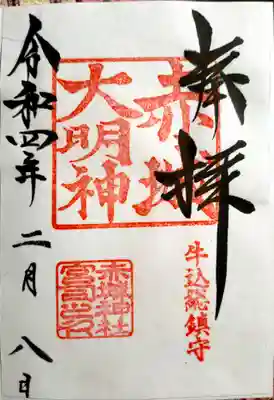 奉拝
赤城
大明神
牛込総鎮守
赤城神社
宮司之印
令和四年二月八日